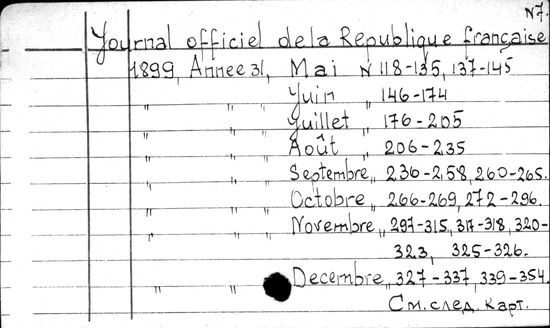 N7.
Journal officiel de la Republique française
1899, Annee 31, Mai N 118-135, 137-145
" " " Juin " 146-174
" " " Juillet " 176-205
" " " Août " 206-235
" " " Septembre " 236-258, 260-265.
" " " Octobre " 266-269, 272-296.
" " " Novembre " 297-315, 317-318, 320-
323, 325-326.
" " Decembre " 327-337, 339-354.
См. след. карт.